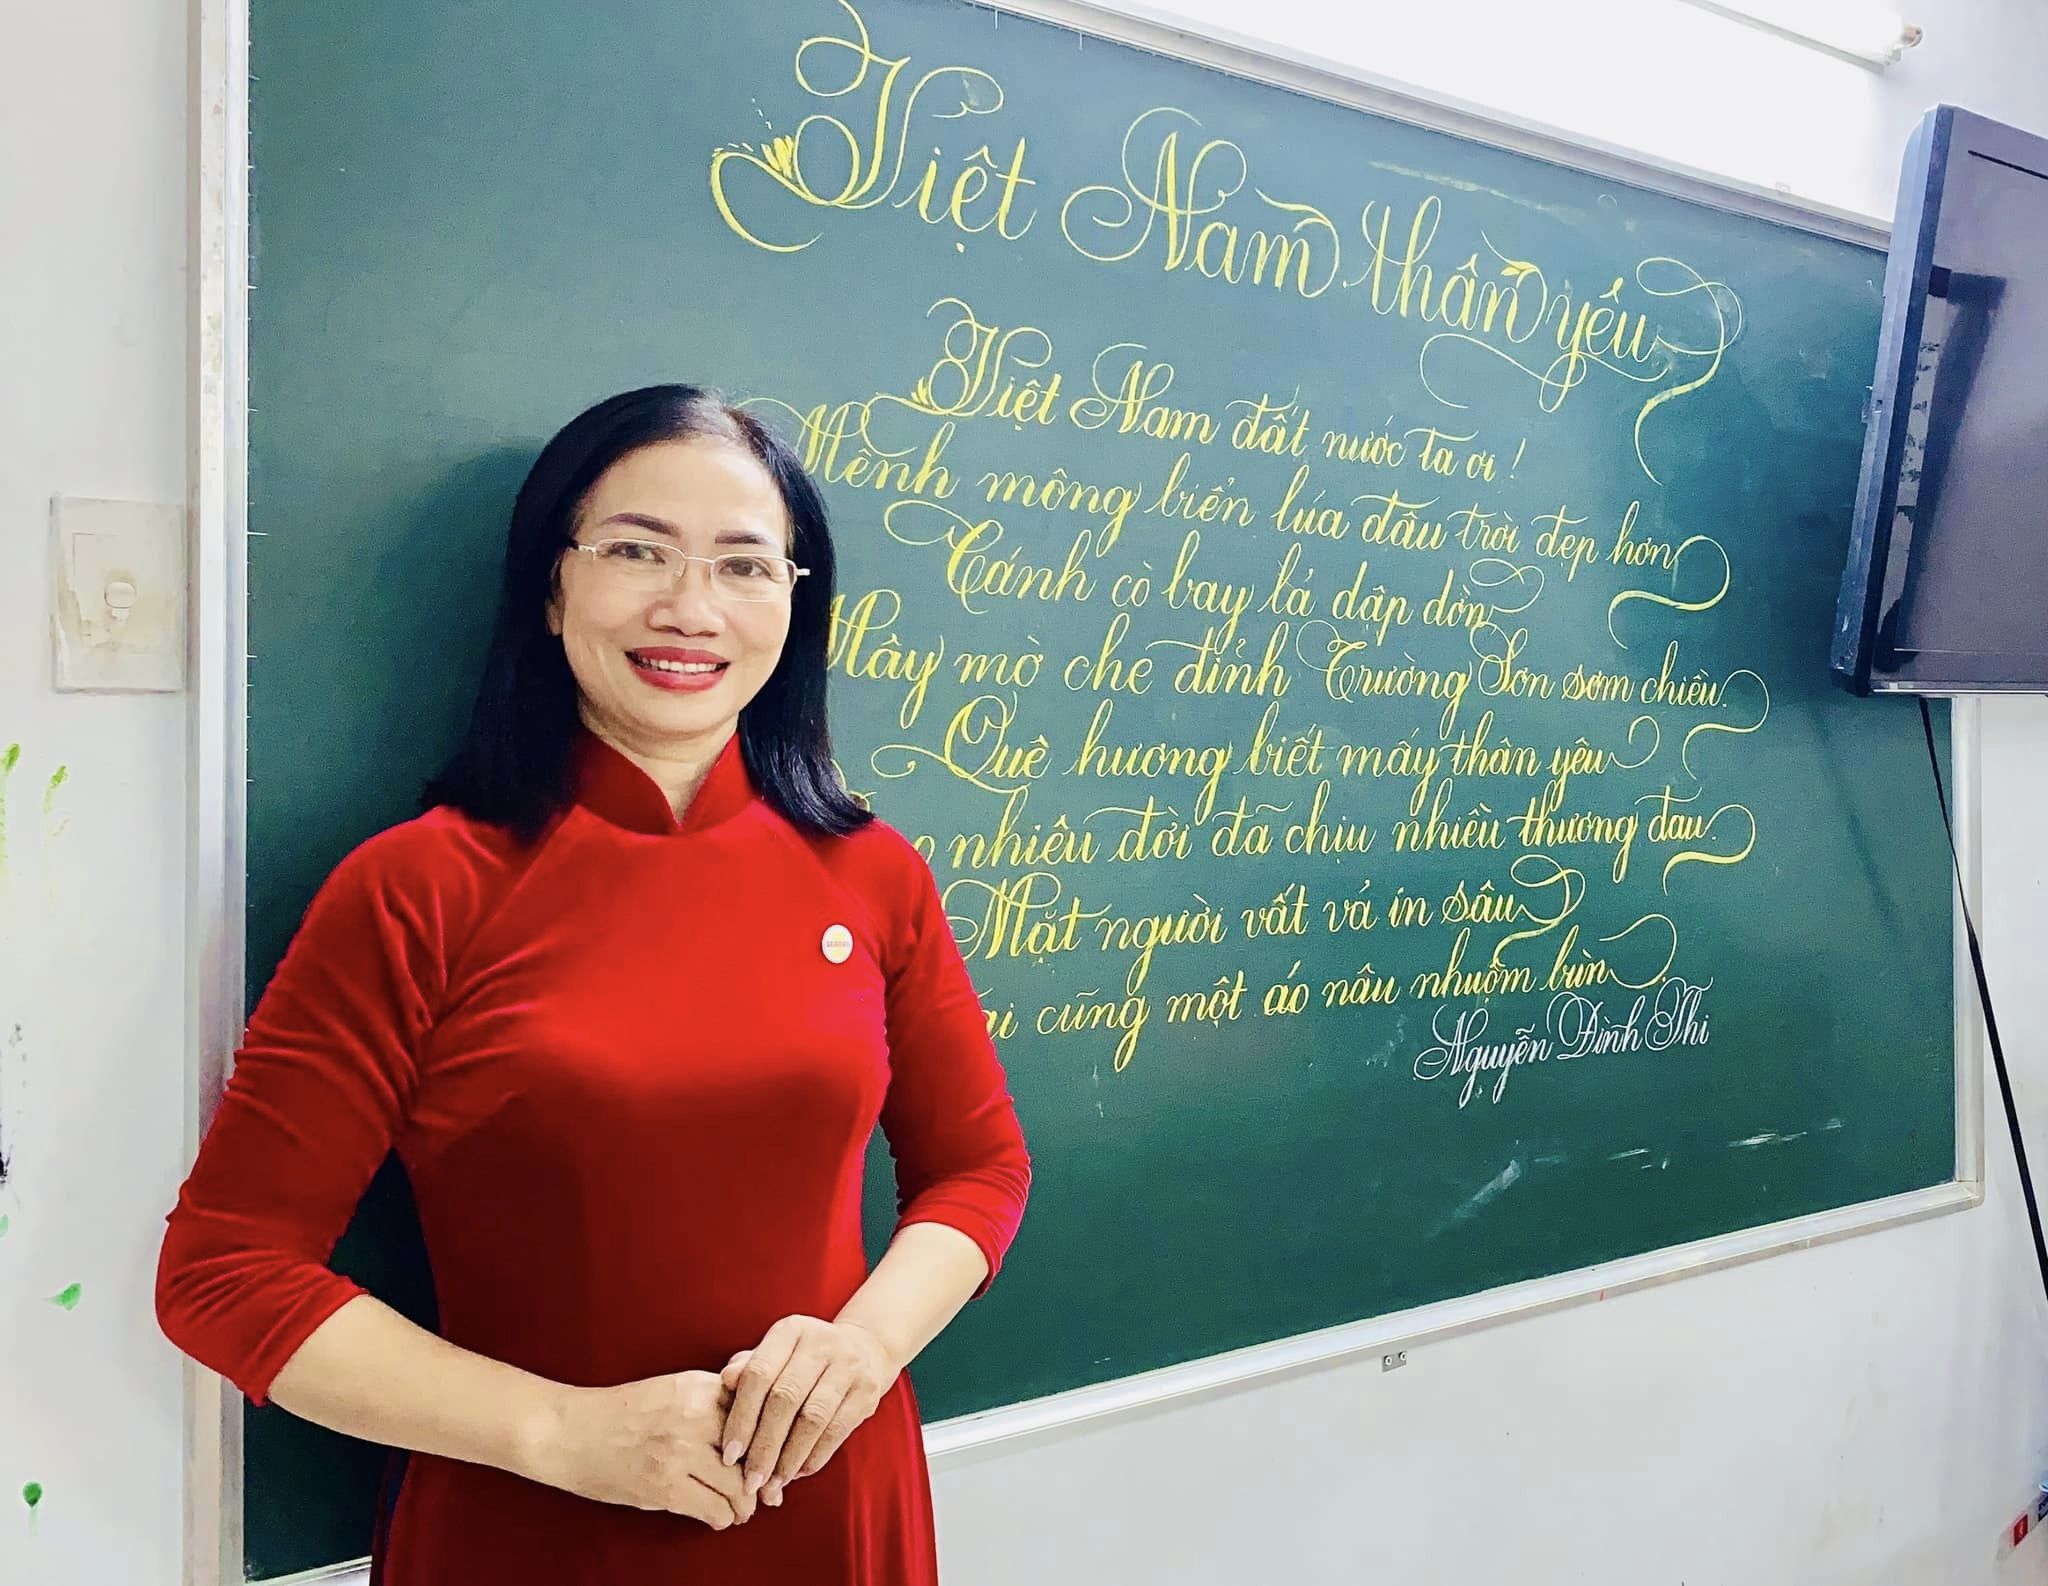 Việt Nam thân yêu
Việt Nam đất nước ta ơi!
Mênh mông biển lúa đâu trời đẹp hơn
Cánh cò bay lả dập dờn
Mây mờ che đỉnh Trường Sơn sớm chiều.
Quê hương biết mấy thân yêu
nhiêu đời đã chịu nhiều thương đau.
Mặt người vất vả in sâu
cũng một áo nâu nhuộm bùn.
Nguyễn Đình Thi